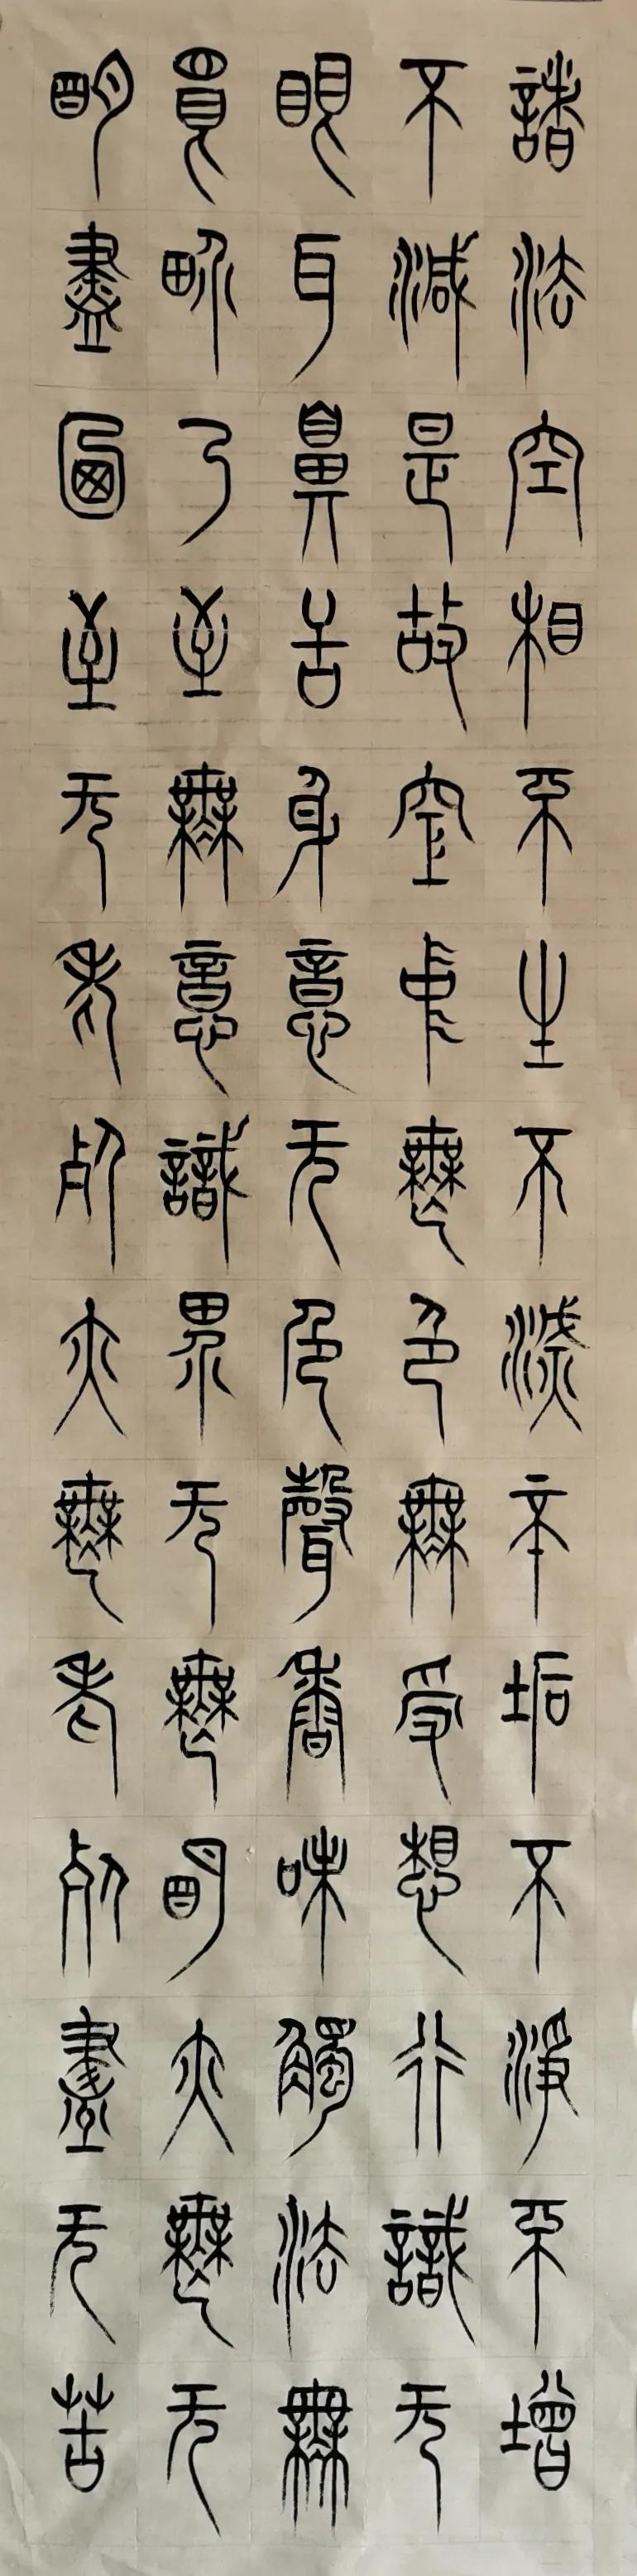 諸法空相不生不滅不垢不淨不增
不減是故空中無色無受想行識无
眼耳鼻舌身意无色聲香味觸法無
眼界乃至無意識界无無明亦無无
明盡乃至无老死亦無老死盡无苦